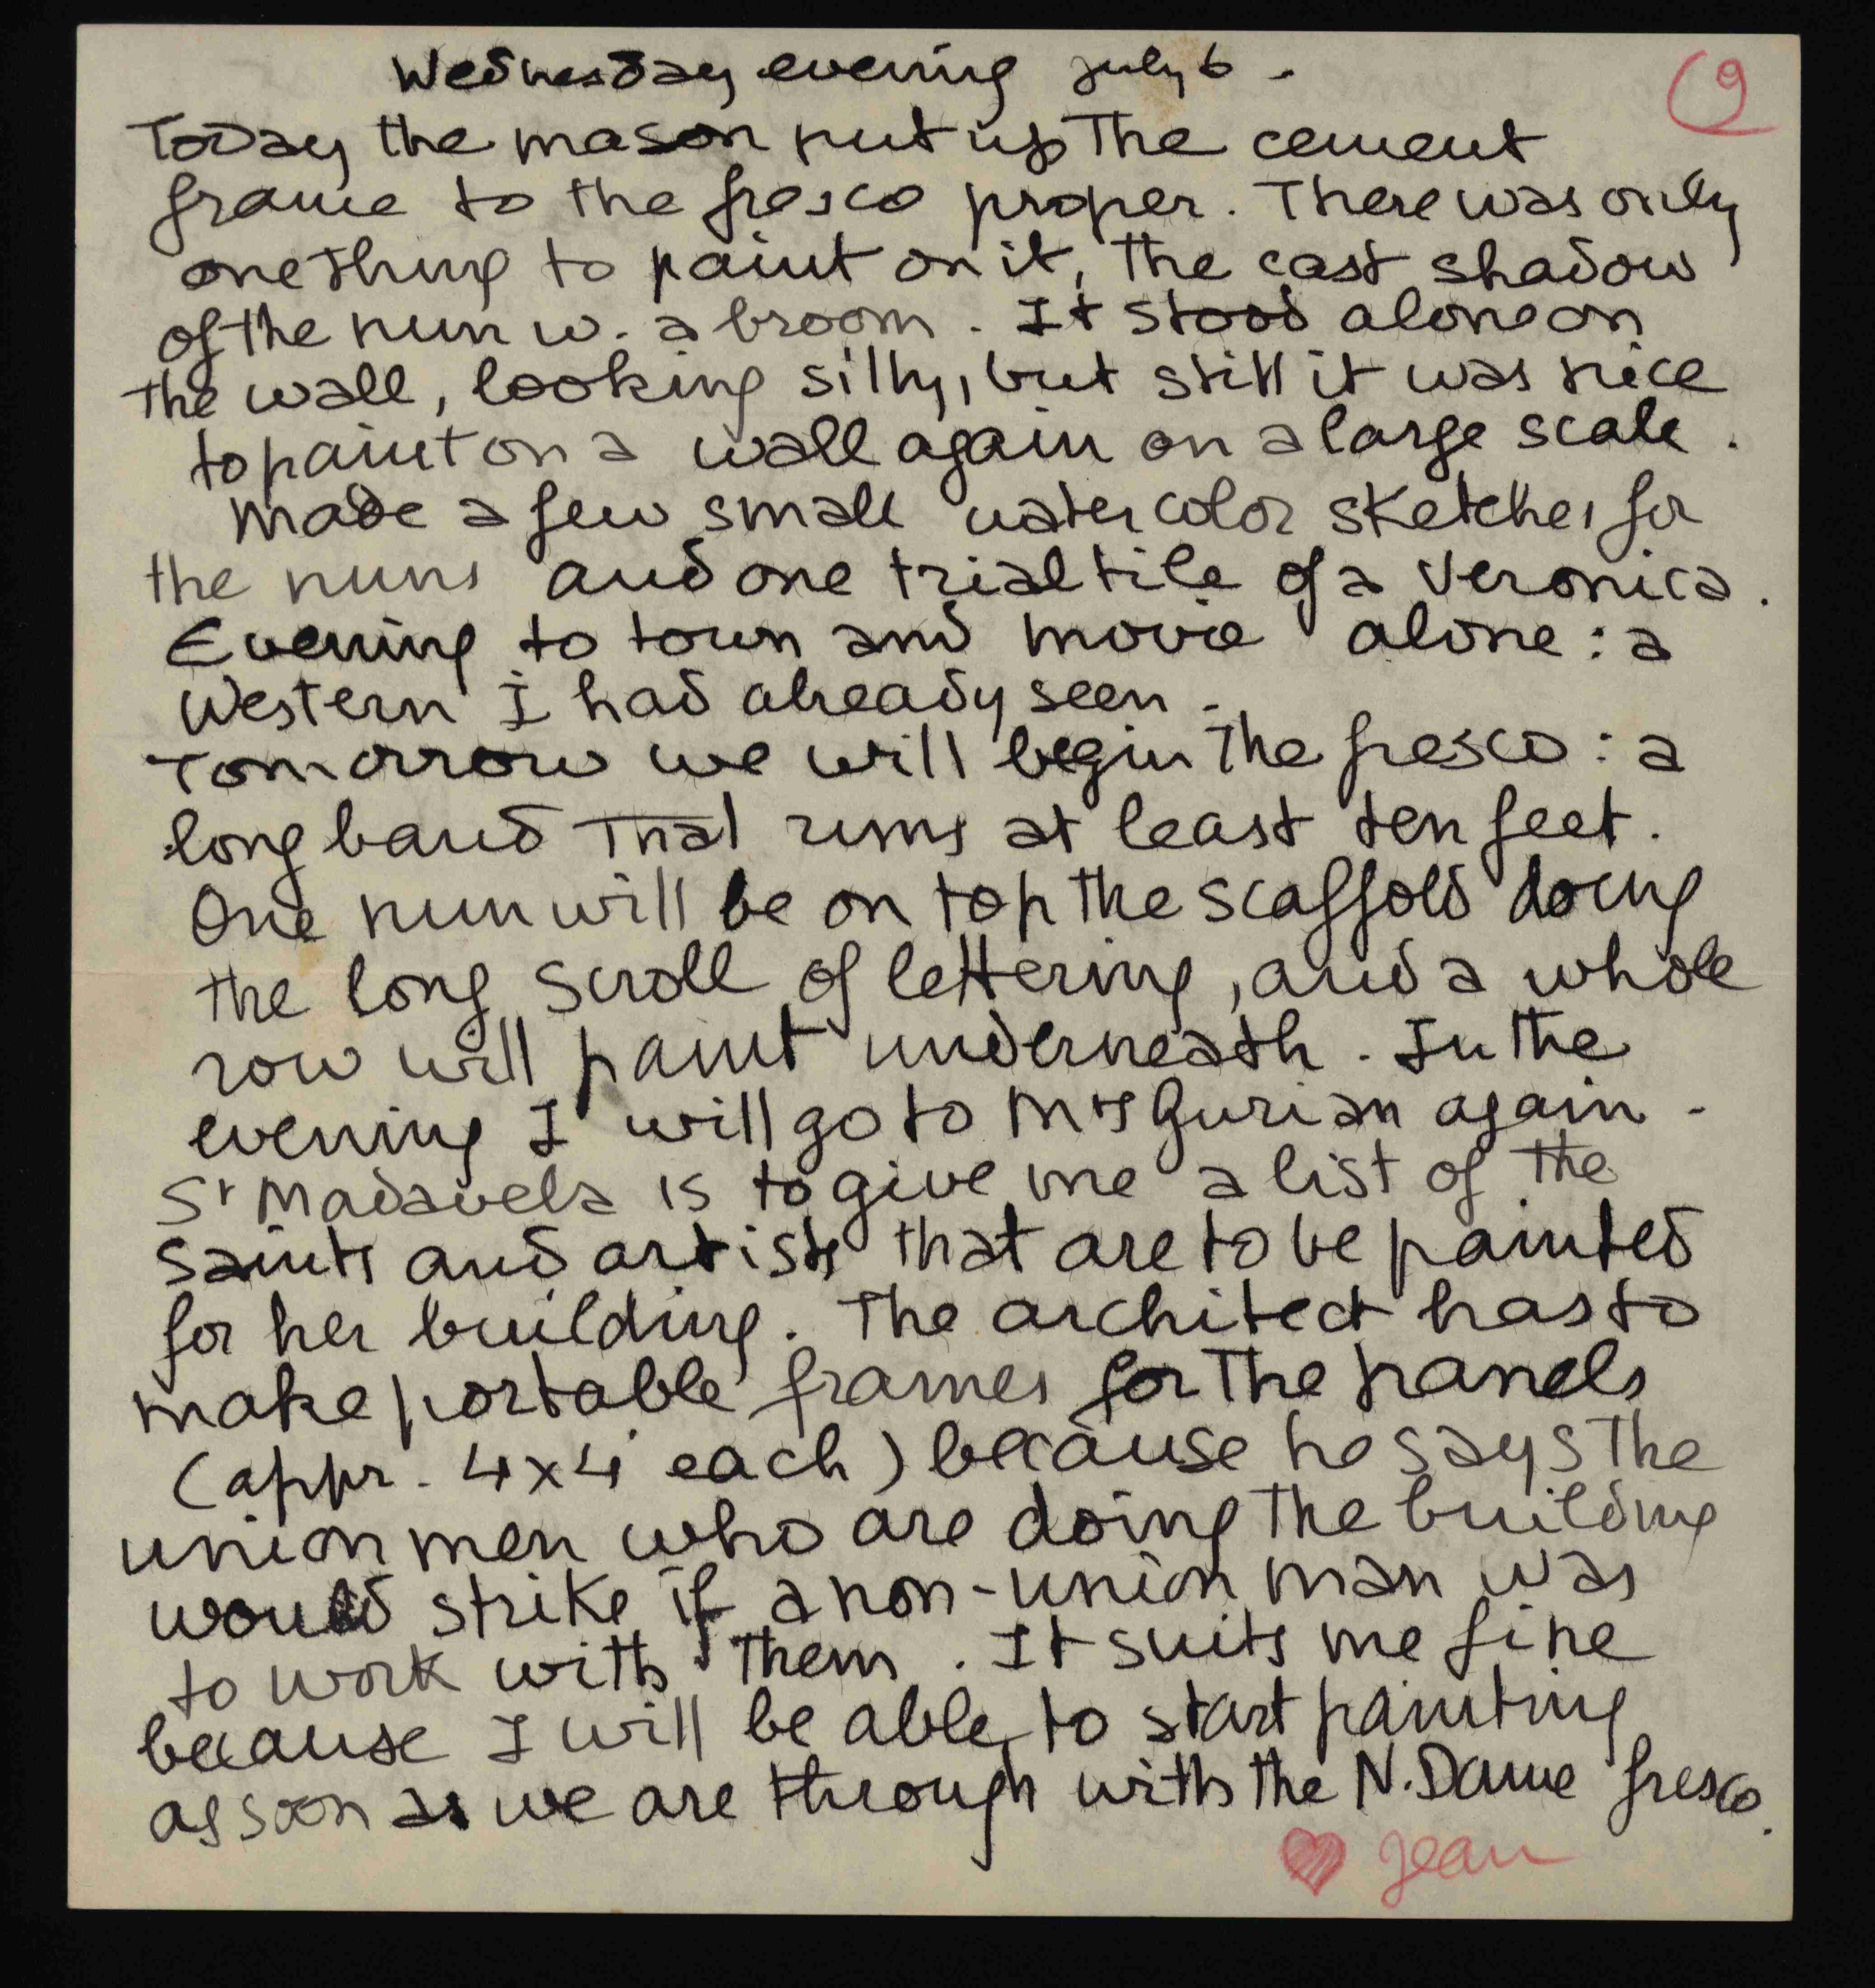 Wednesday evening July 6 -
9
Today the mason put up the cement
frame to the fresco proper. There was only
one thing to paint on it, the cast shadow
of the nun w. a broom. It stood alone on
the wall, looking silly, but still it was nice
to paint on a wall again on a large scale.
Made a few small watercolor sketches for
the nuns and one trial tile of a Veronica.
Evening to town and movie alone: a
Western I had already seen.
Tomorrow we will begin the fresco: a
long band that runs at least ten feet.
One nun will be on top the scaffold doing
the long scroll of lettering, and a whole
row will paint underneath. In the
evening I will go to Mrs Gurian again -
Sr Madavela is to give me a list of the
saints and artists that are to be painted
for her building. The architect has to
make portable frames for the panels
(appr. 4x4 each) because he says the
union men who are doing the building
would strike if a non-union man was
to work with them. It suits me fine
because I will be able to start painting
as soon as we are through with the N. Dame fresco.
♥ Jean